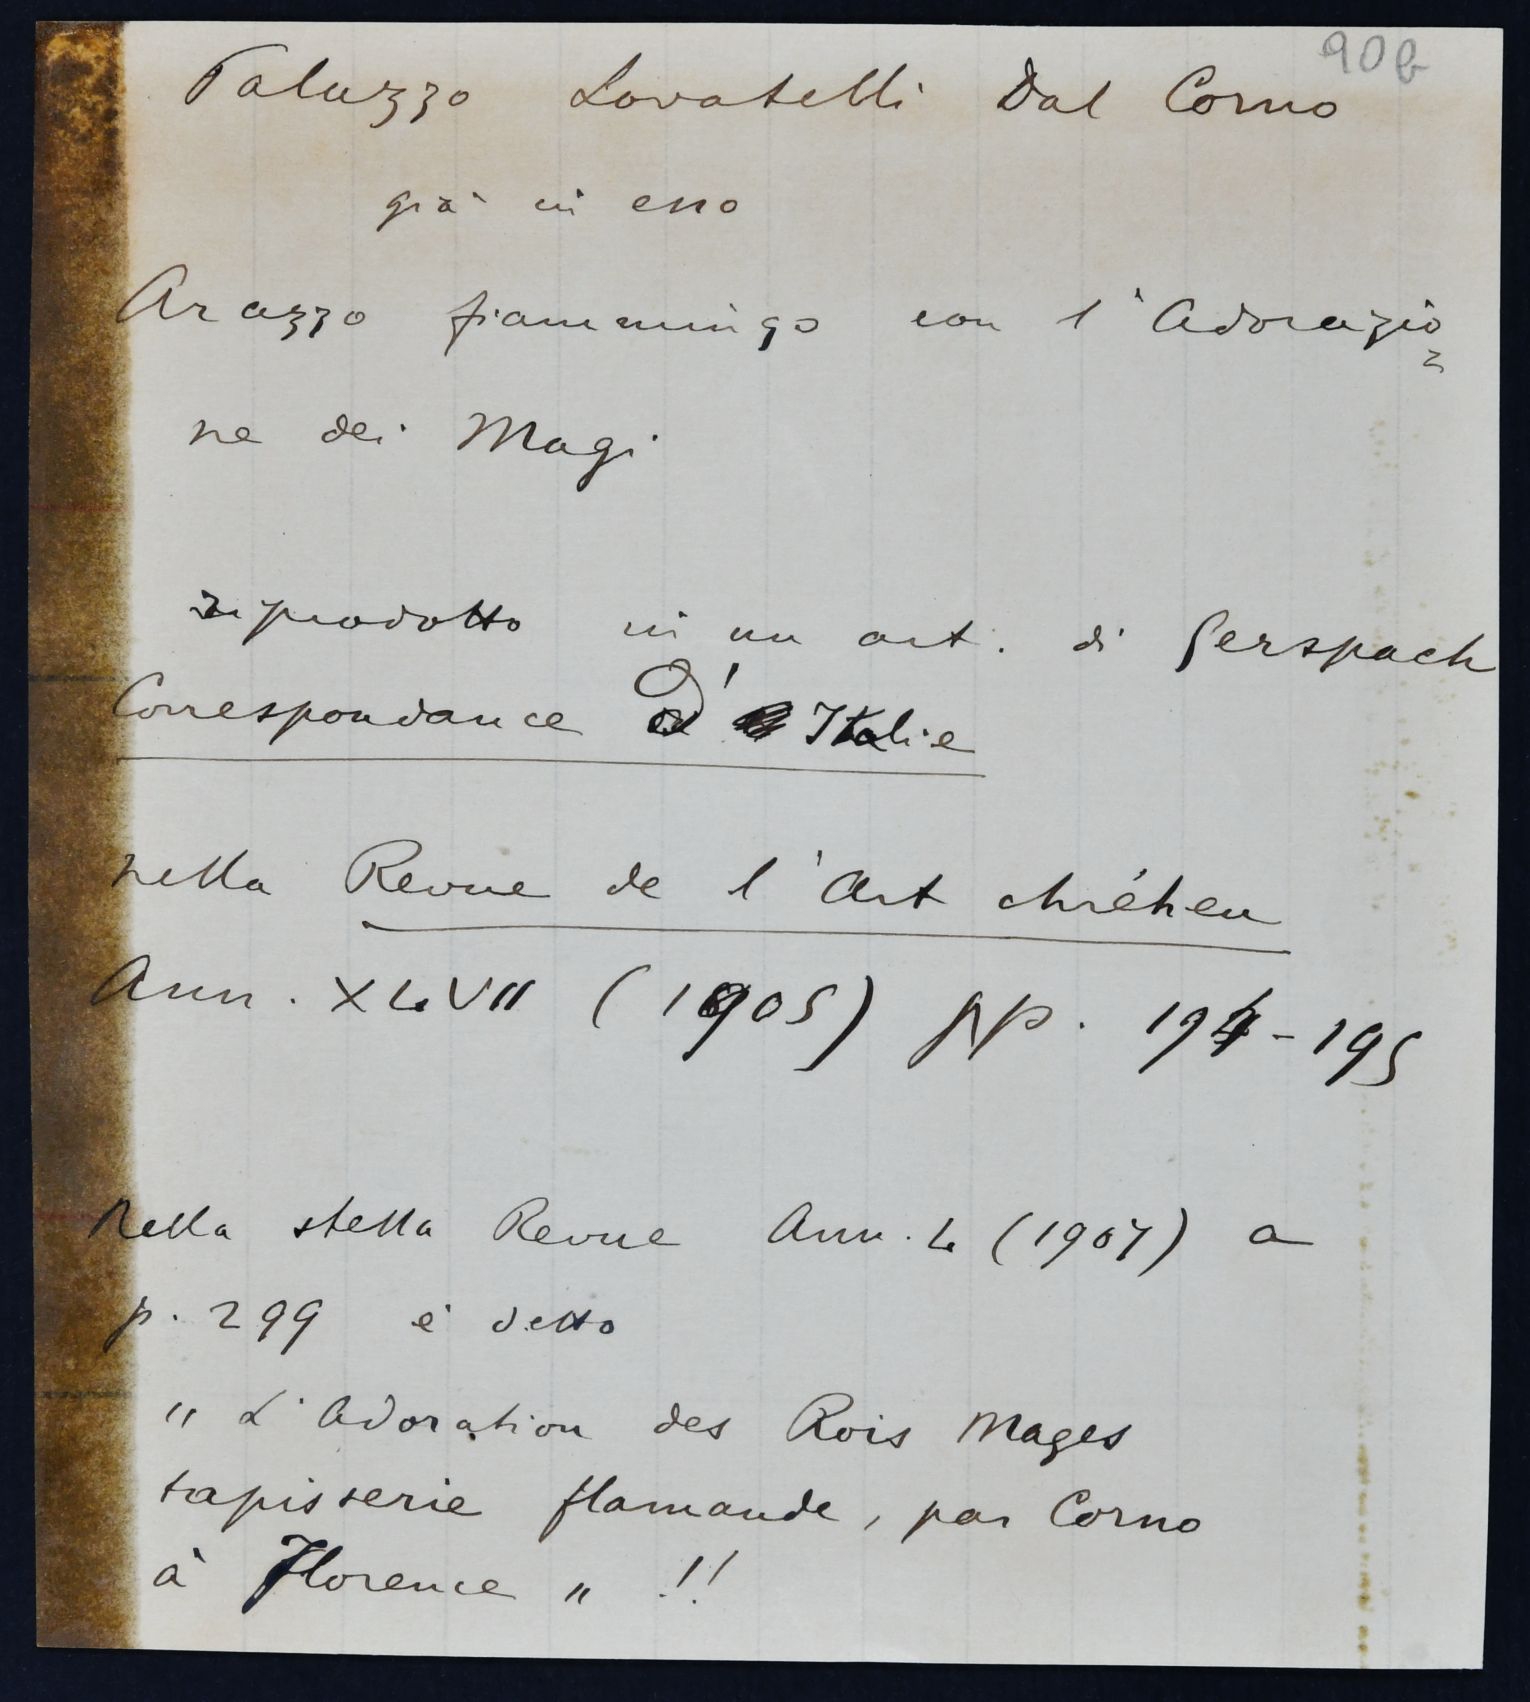 90b
Palazzo Lovatelli Dal Corno
già in esso
Arazzo fiammingo con l'Adorazio=
ne dei Magi
riprodotto in un art. di Gerspach
Correspondance d'Italie
nella Revue de l'Art chrétien
Ann. XLVII (1905) pp. 194-195
Nella stessa Revue Ann. L (1907) a
p. 299 è detto
"L'Adoration des Rois Mages
tapisserie flamande, par Corno
à Florence" !!